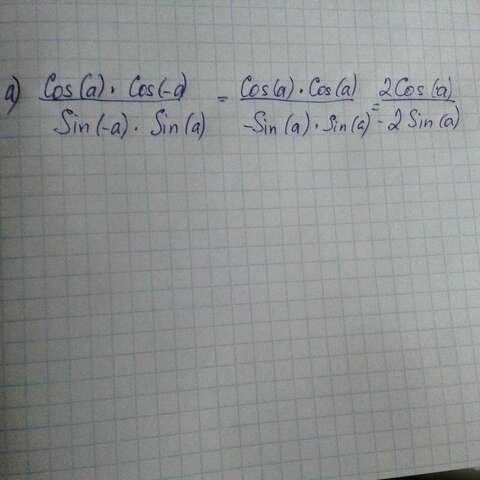 a) Cos(a) · Cos(-a) / Sin(-a) · Sin(a) = Cos(a) · Cos(a) / -Sin(a) · Sin(a) = 2Cos(a) / -2Sin(a)